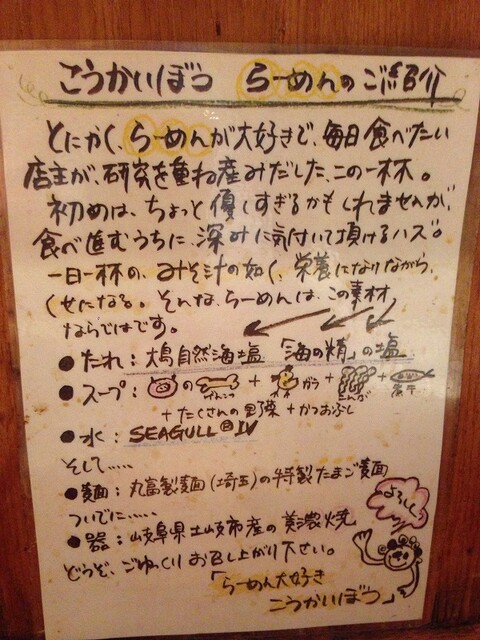 こうかいぼう らーめんのご紹介
とにかく、らーめんが大好きで、毎日食べたい
店主が、研究を重ね産みだした、この一杯。
初めは、ちょっと優しすぎるかもしれませんが、
食べ進むうちに、深みに気付いて頂けるハズ。
一日一杯の、みそ汁の如く、栄養になりながら、
くせになる。そんな、らーめんは、この素材
ならではです。
●たれ：大島自然海塩「海の精」の塩
●スープ：の げんこつ + ガラ + たんか + 煮干
+たくさんの野菜 +かつおぶし
●水：SEAGULL Ⓡ IV
そして.....
●麺：丸富製麺(埼玉)の特製たまご麺
ついでに.....
●器：岐阜県土岐市産の美濃焼
よろしく
どうぞ、ごゆっくりお召し上がり下さい。
「らーめん大好き
こうかいぼう」